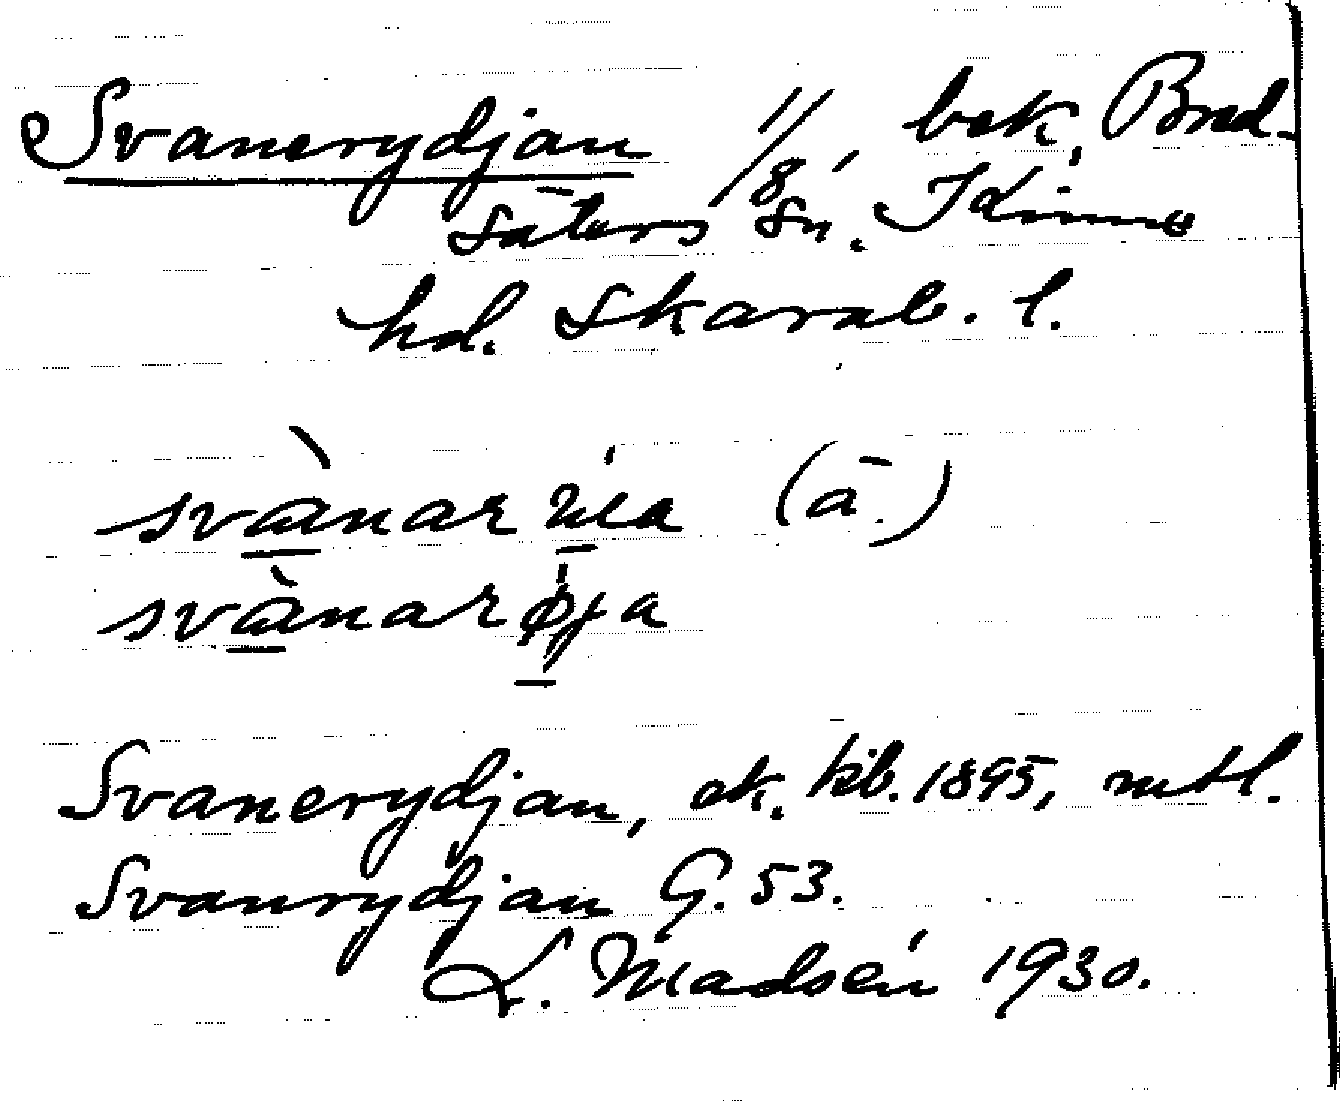 Svanerydjan 1/8, bek, Bred-
säters sn. Kinne
hd. Skarab. l.
svanar (a.)
svanarøja
Svanerydjan, ek. kb. 1895, mtl.
Svanrydjan G. 53.
L. Madsén 1930.